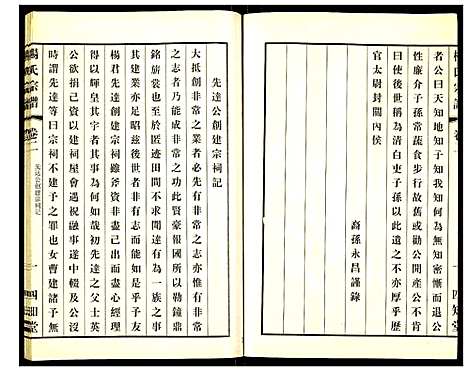 楊氏宗譜 卷一
者公曰天知地知子知我知何爲無知密慚而退公
性廉介子孫常蔬食步行故舊或勸公開產公不
肯曰使後世稱爲清白吏子孫以此遺之不亦厚乎歷
官太尉封關內侯
裔孫永昌謹錄
一 四知堂
先達公創建宗祠記
大抵創非常之業者必先有非常之志亦惟有非常
之志者乃能成非常之功此賢豪報國所以勒鐘鼎
銘旂裳也至於敦本睦族建祠收宗雖爲一族之事
其建業亦足昭茲後者非有志而能如是乎予友
楊君先達創建宗祠雖斧資非盡己出而盡心經理
得以輝皇其宇者可與哉初先達之父士英
公欲捐己資以建祠屋會遇祝融事遂中輟及公沒
時謂先達等曰宗祠不建予之罪也女曹建諸予無
楊氏宗譜 卷一
先達公創建宗祠記
一 四知堂